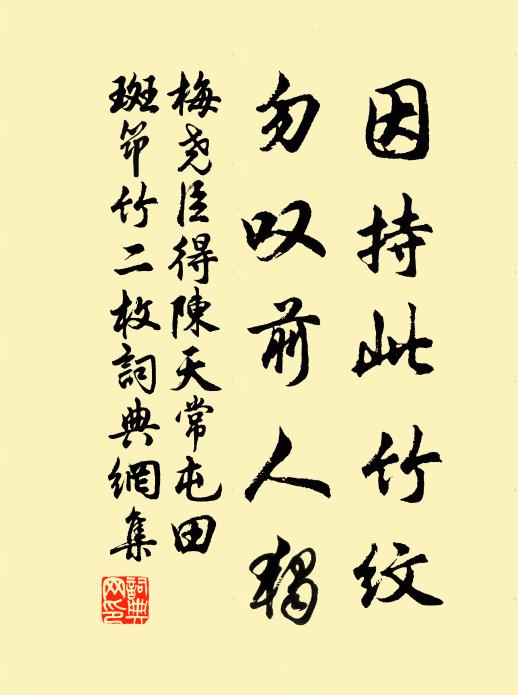 因持此竹紋
勿叹前人獨
梅堯臣得陳天常屯田
斑笻竹二枚詞典網集
詞典網印